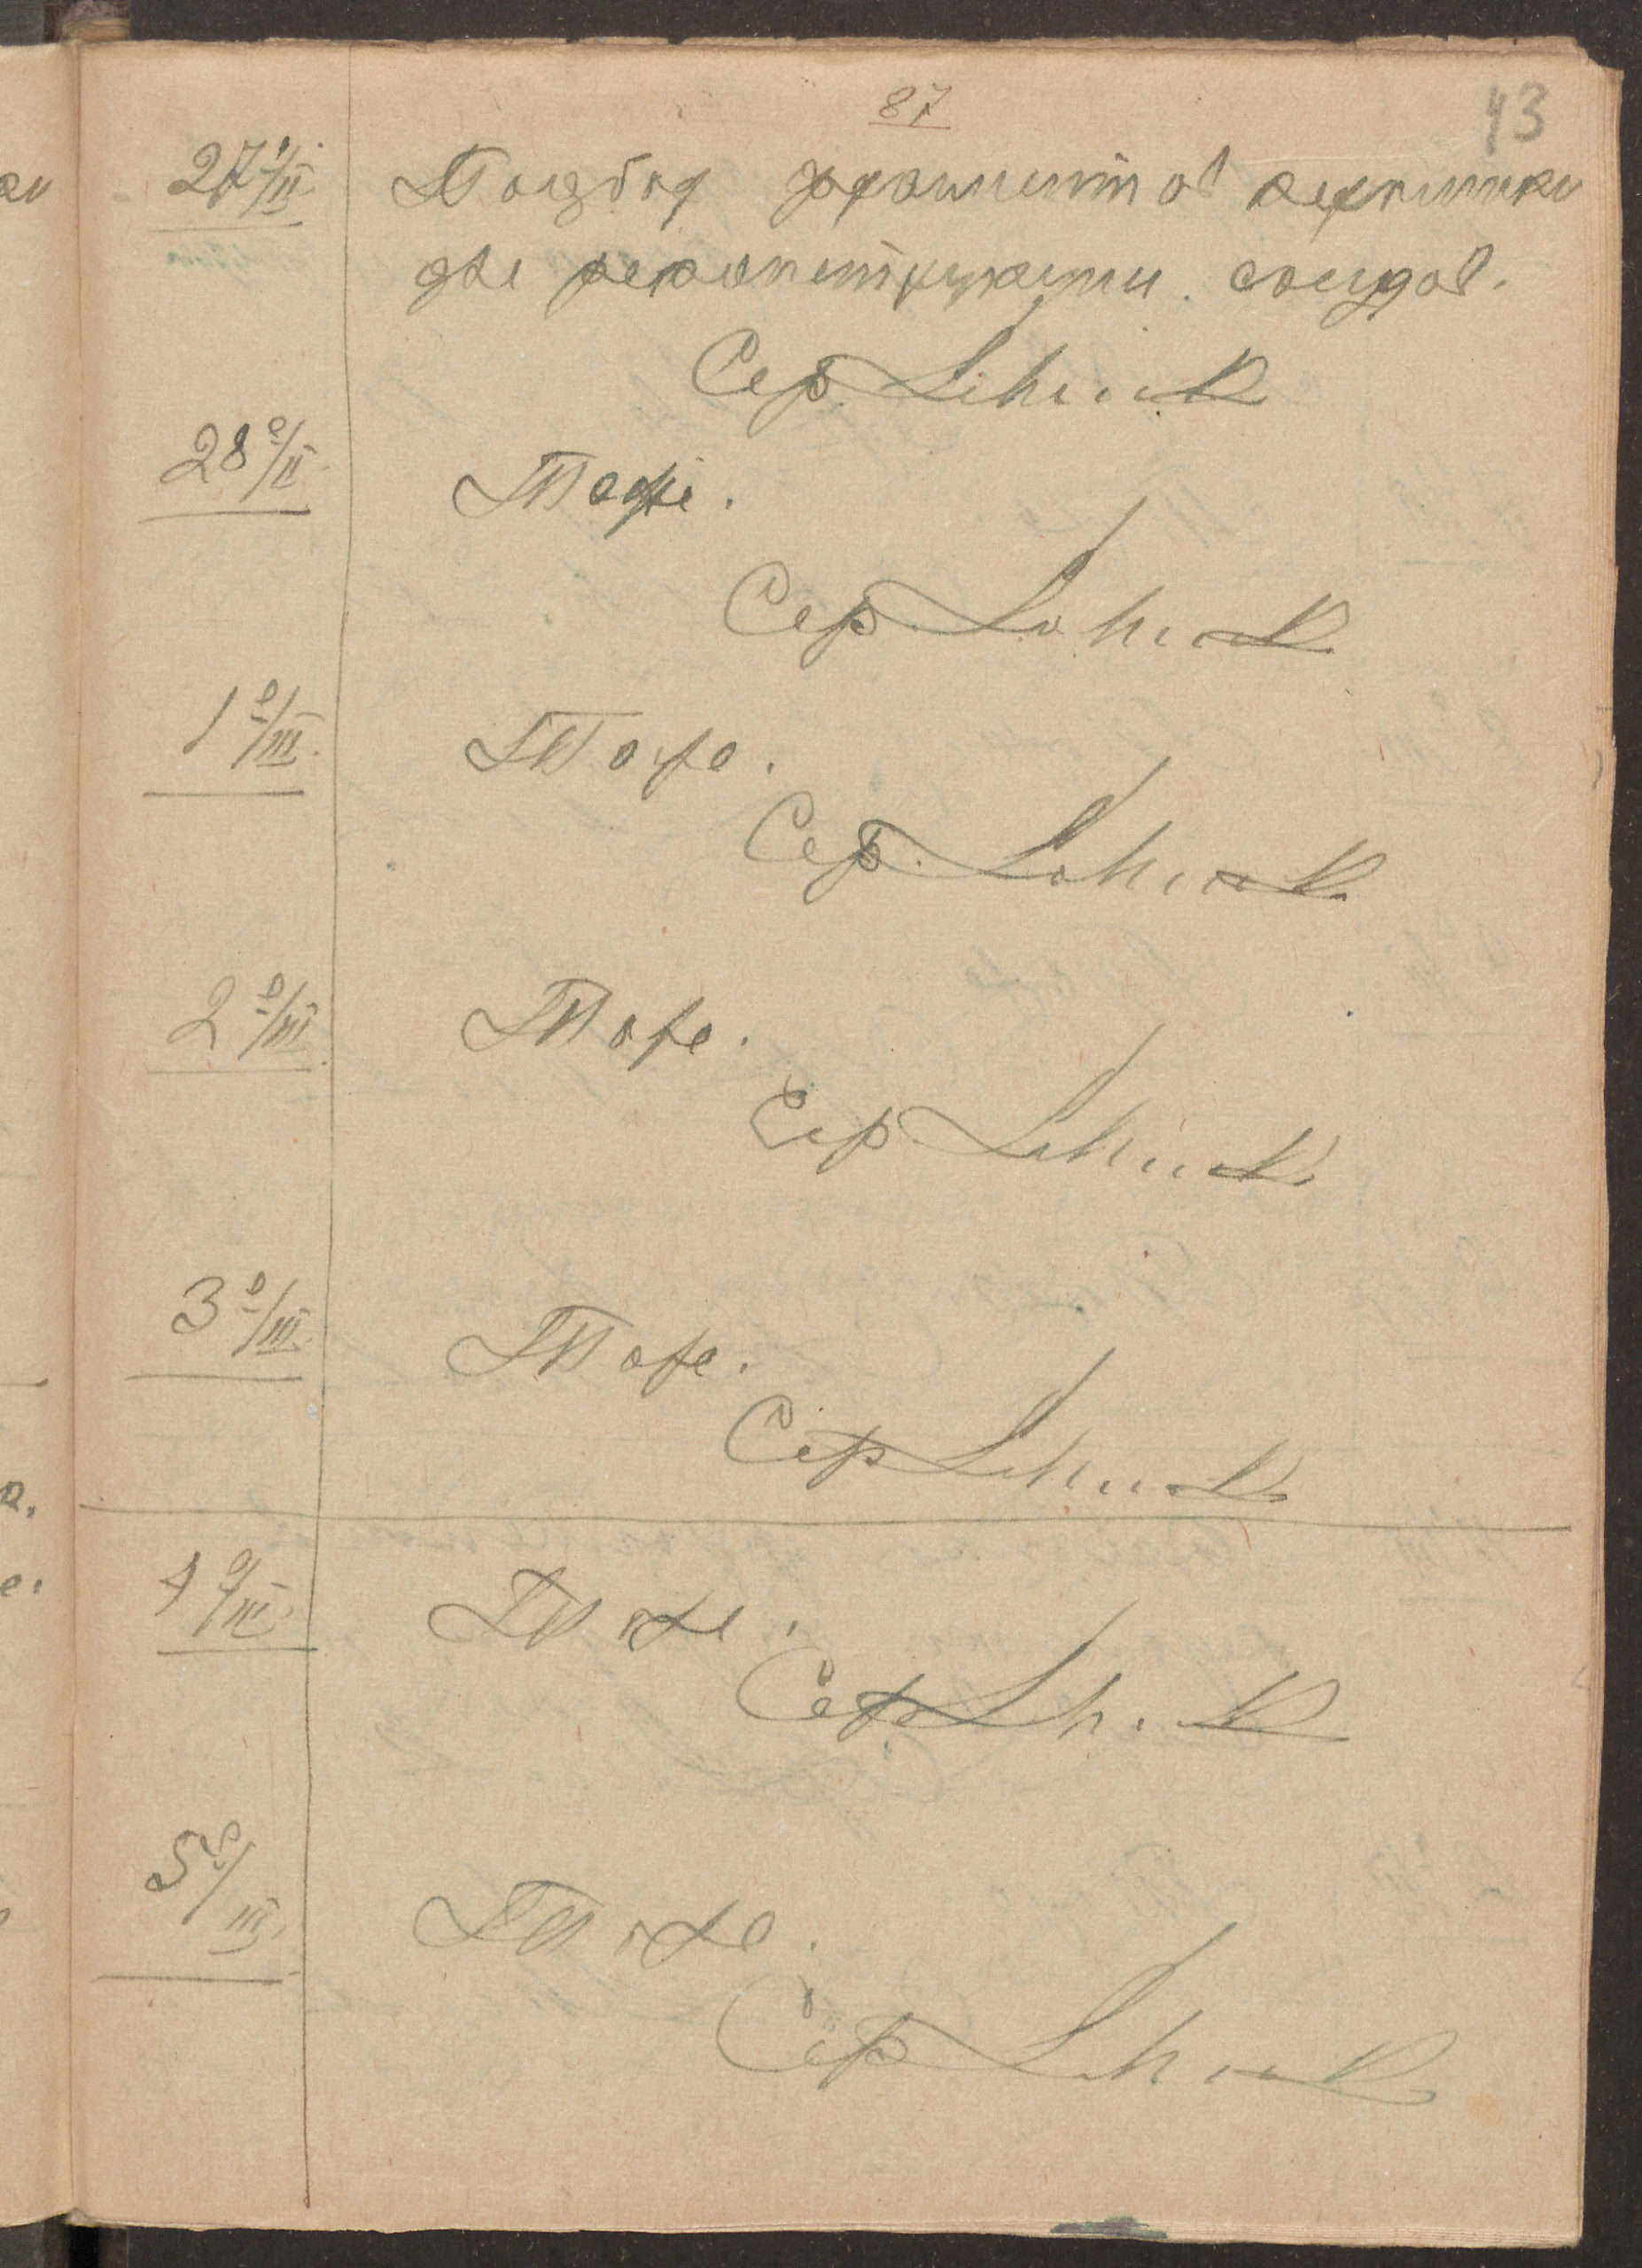 87
43
27 о/II. Подбор фрагментов керамики
для реконструкции сосудов.
Сер.
28 о/II. Тоже.
Сер.
1 о/III. Тоже.
Сер.
2 о/III. Тоже.
Сер
3 о/III. Тоже.
Сер
4 о/III. Тоже.
Сер
5 о/III. Тоже.
Сер